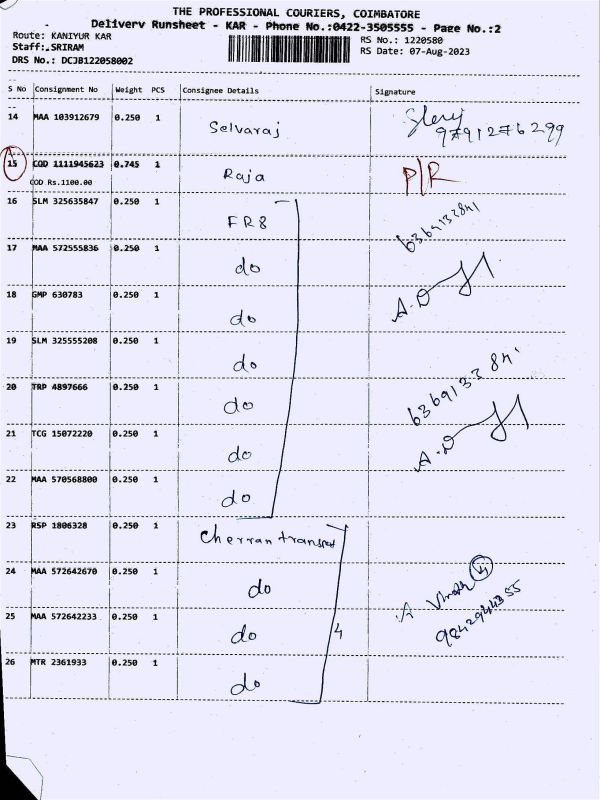 THE PROFESSIONAL COURIERS, COIMBATORE
Delivery Runsheet - KAR - Phone No.:0422-3505555 - Page No.:2
Route: KANIYUR KAR
RS No.: 1220580
Staff:.SRIRAM
RS Date: 07-Aug-2023
DRS No.: DCJB122058002
S No Consignment No Weight PCS Consignee Details Signature
14 MAA 103912679 0.250 1 Selvaraj
9791276299
15 COD 1111945623 0.745 1 Raja P/R
COD Rs.1100.00
16 SLM 325635847 0.250 1 FR8
17 MAA 572555836 0.250 1 do
A.D
18 GMP 630783 0.250 1 do
19 SLM 325555208 0.250 1 do
20 TRP 4897666 0.250 1 do
6369133841
21 TCG 15072220 0.250 1 do
A.D
22 MAA 570568800 0.250 1 do
23 RSP 1806328 0.250 1 Cherran transport
24 MAA 572642670 0.250 1 do
4
25 MAA 572642233 0.250 1 do 4
9842944355
26 MTR 2361933 0.250 1 do